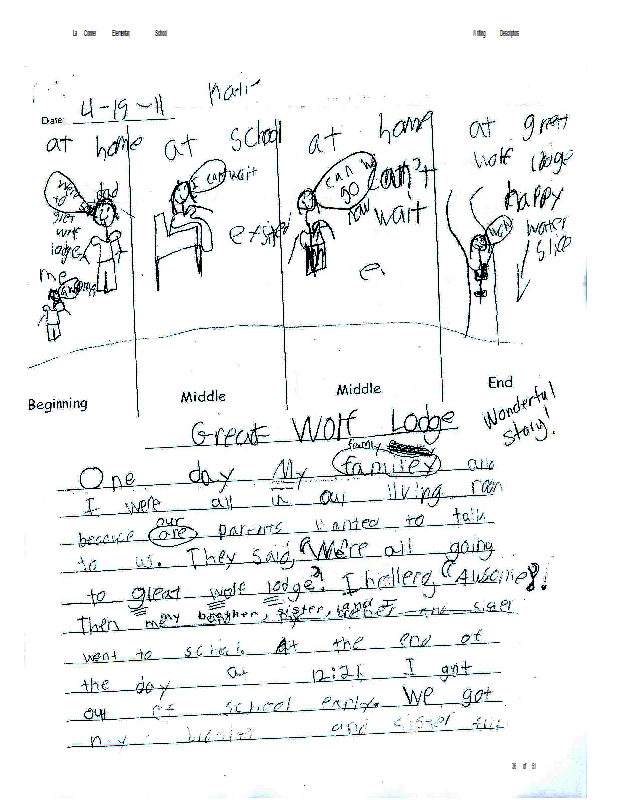 La Conner Elementary School
Writing Descriptors
Date: 4-19-11
at home
at school
at home
at great wolf lodge
I can wait
can we go now
can't wait
exsited
happy
water slide
dad
me
e
Beginning
Middle
Middle
End
Wonderful story!
Great Wolf Lodge
family
One day My familey and
I were all in our living room
our
because are parents wanted to talk
to us. They said, "We're all going
to great wolf lodge". I hellerg "Awsome"!
Then my brother, sister, and I
went to school. At the end of
the day at 12:21 I got
out of school erly. We got
my and sister